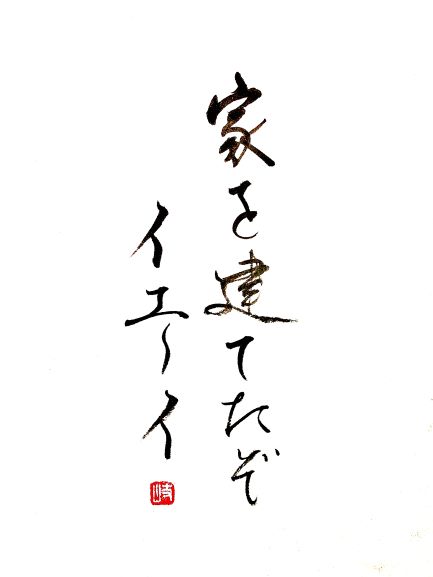 家を建てたぞ
イエーイ
岐